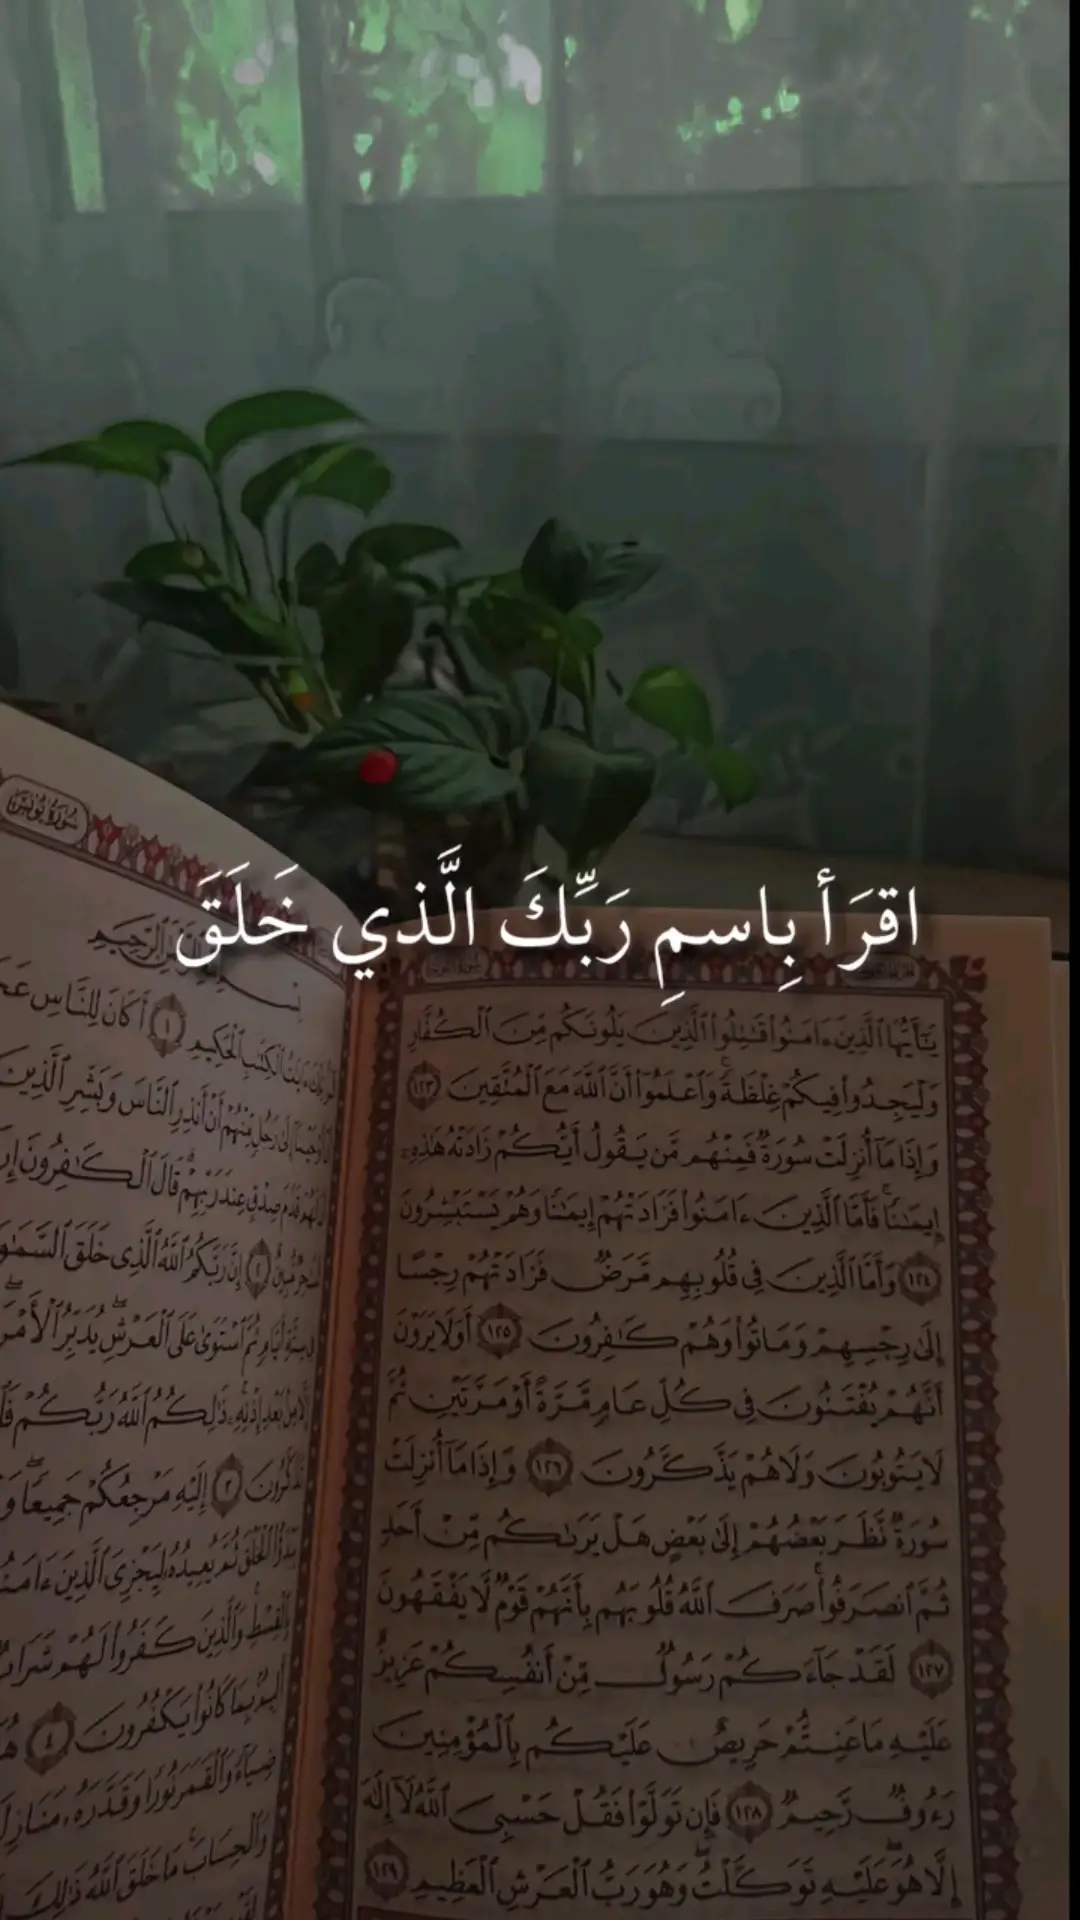 اقرَأ بِاسمِ رَبِّكَ الَّذي خَلَقَ
يَٰٓأَيُّهَا ٱلَّذِينَ ءَامَنُوا۟ قَٰتِلُوا۟ ٱلَّذِينَ يَلُونَكُم مِّنَ ٱلْكُفَّارِ
وَلْيَجِدُوا۟ فِيكُمْ غِلْظَةً ۚ وَٱعْلَمُوٓا۟ أَنَّ ٱللَّهَ مَعَ ٱلْمُتَّقِينَ ١٢٣
وَإِذَا مَآ أُنزِلَتْ سُورَةٌ فَمِنْهُم مَّن يَقُولُ أَيُّكُمْ زَادَتْهُ هَٰذِهِۦٓ
إِيمَٰنًا ۚ فَأَمَّا ٱلَّذِينَ ءَامَنُوا۟ فَزَادَتْهُمْ إِيمَٰنًا وَهُمْ يَسْتَبْشِرُونَ
١٢٤ وَأَمَّا ٱلَّذِينَ فِى قُلُوبِهِم مَّرَضٌ فَزَادَتْهُمْ رِجْسًا
إِلَىٰ رِجْسِهِمْ وَمَاتُوا۟ وَهُمْ كَٰفِرُونَ ١٢٥ أَوَلَا يَرَوْنَ
أَنَّهُمْ يُفْتَنُونَ فِى كُلِّ عَامٍ مَّرَّةً أَوْ مَرَّتَيْنِ ثُمَّ
لَا يَتُوبُونَ وَلَا هُمْ يَذَّكَّرُونَ ١٢٦ وَإِذَا مَآ أُنزِلَتْ
سُورَةٌ نَّظَرَ بَعْضُهُمْ إِلَىٰ بَعْضٍ هَلْ يَرَىٰكُم مِّنْ أَحَدٍ
ثُمَّ ٱنصَرَفُوا۟ ۚ صَرَفَ ٱللَّهُ قُلُوبَهُم بِأَنَّهُمْ قَوْمٌ لَّا يَفْقَهُونَ
١٢٧ لَقَدْ جَآءَكُمْ رَسُولٌ مِّنْ أَنفُسِكُمْ عَزِيزٌ
عَلَيْهِ مَا عَنِتُّمْ حَرِيصٌ عَلَيْكُم بِٱلْمُؤْمِنِينَ
رَءُوفٌ رَّحِيمٌ ١٢٨ فَإِن تَوَلَّوْا۟ فَقُلْ حَسْبِىَ ٱللَّهُ لَآ إِلَٰهَ
إِلَّا هُوَ ۖ عَلَيْهِ تَوَكَّلْتُ ۖ وَهُوَ رَبُّ ٱلْعَرْشِ ٱلْعَظِيمِ ١٢٩
سُورَةُ يُونُسَ
ٱلرَّحِيمِ
ءَايَٰتُ ٱلْكِتَٰبِ ٱلْحَكِيمِ ١ أَكَانَ لِلنَّاسِ
إِلَىٰ رَجُلٍ مِّنْهُمْ أَنْ أَنذِرِ ٱلنَّاسَ وَبَشِّرِ ٱلَّذِينَ
لَهُمْ قَدَمَ صِدْقٍ عِندَ رَبِّهِمْ ۗ قَالَ ٱلْكَٰفِرُونَ
٢ إِنَّ رَبَّكُمُ ٱللَّهُ ٱلَّذِى خَلَقَ
أَيَّامٍ ثُمَّ ٱسْتَوَىٰ عَلَى ٱلْعَرْشِ ۖ يُدَبِّرُ ٱلْأَمْرَ
مِنۢ بَعْدِ إِذْنِهِۦ ۚ ذَٰلِكُمُ ٱللَّهُ رَبُّكُمْ
تَذَكَّرُونَ ٣ إِلَيْهِ مَرْجِعُكُمْ جَمِيعًا ۖ
ٱلْخَلْقَ ثُمَّ يُعِيدُهُۥ لِيَجْزِىَ ٱلَّذِينَ
بِٱلْقِسْطِ ۚ وَٱلَّذِينَ كَفَرُوا۟ لَهُمْ
بِمَا كَانُوا۟ يَكْفُرُونَ ٤
ضِيَآءً وَٱلْقَمَرَ نُورًا وَقَدَّرَهُۥ
وَٱلْحِسَابَ ۚ مَا خَلَقَ ٱللَّهُ ذَٰلِكَ